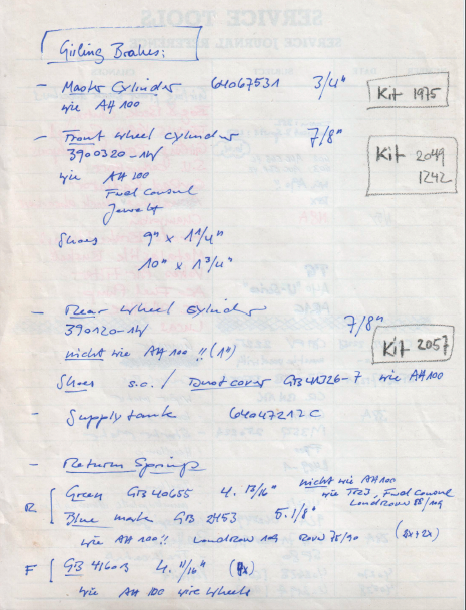 Girling Brakes:
- Master Cylinder 64067531 3/4" Kit 1975
wie AH 100
- Front wheel cylinder 7/8"
3900320-W Kit 2049
wie AH 100 1242
Ford Consul
Jowett
Shoes 9" x 1 1/4"
10" x 1 3/4"
- Rear wheel cylinder
390120-W 7/8"
nicht wie AH 100 !! (1") Kit 2057
Shoes s.o. / Dust cover GB 41326-7 wie AH 100
- Supply tank 64047212C
- Return Springs
R Green GB 40655 4. 13/16" nicht wie AH 100
wie TR23, Ford Consul
Landrover 88/109
Blue mark GB 2453 5. 1/8"
wie AH 100 !! Landrover 109 Rover 75/90 (2x+2x)
F GB 41603 4. 11/16"
wie AH 100 wire wheels